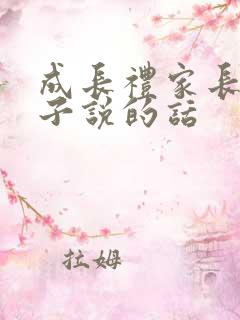 成長禮家長
子說的話
拉姆